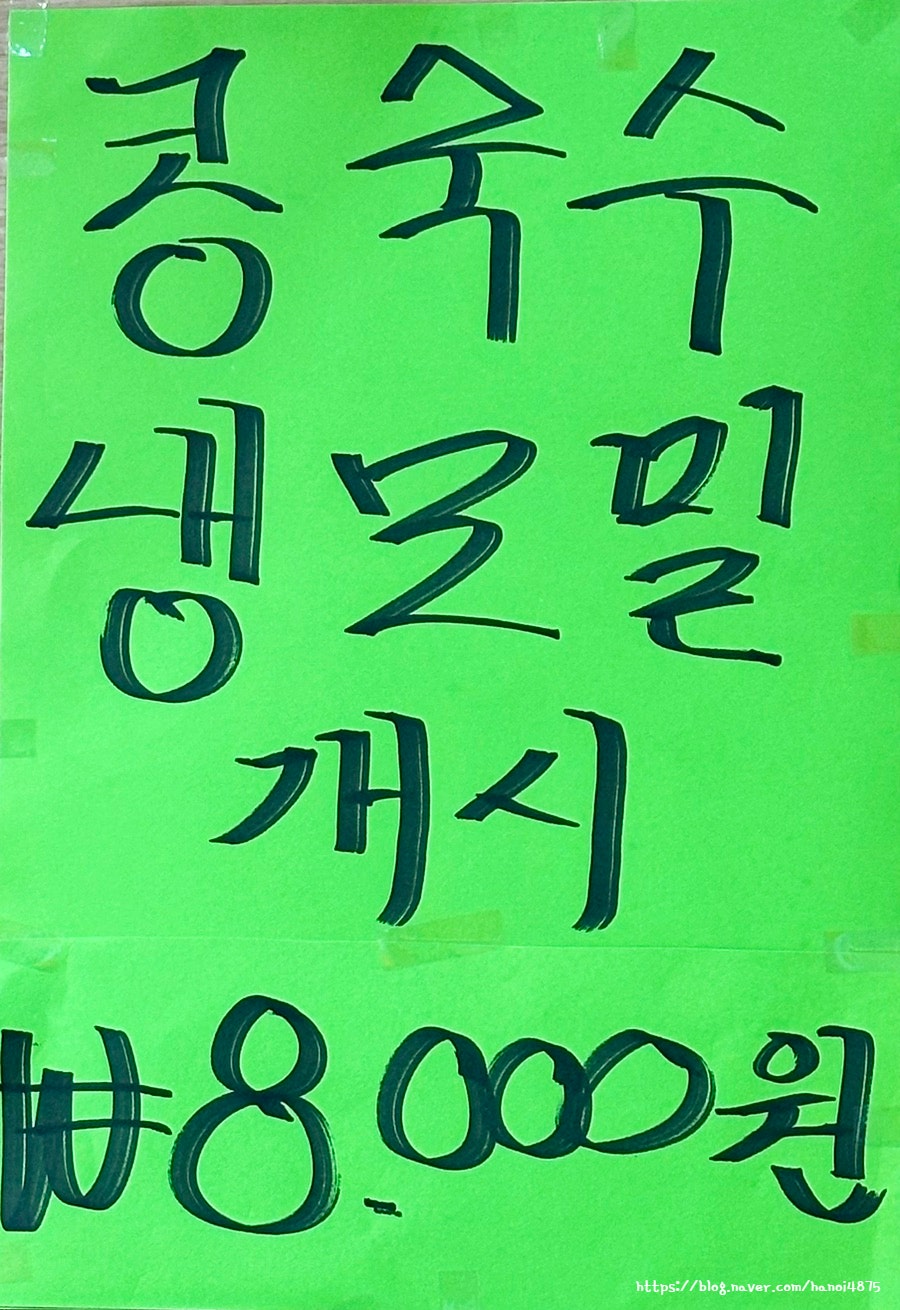 콩국수
냉모밀
개시
₩8.000원
https://blog.naver.com/hanoi4875